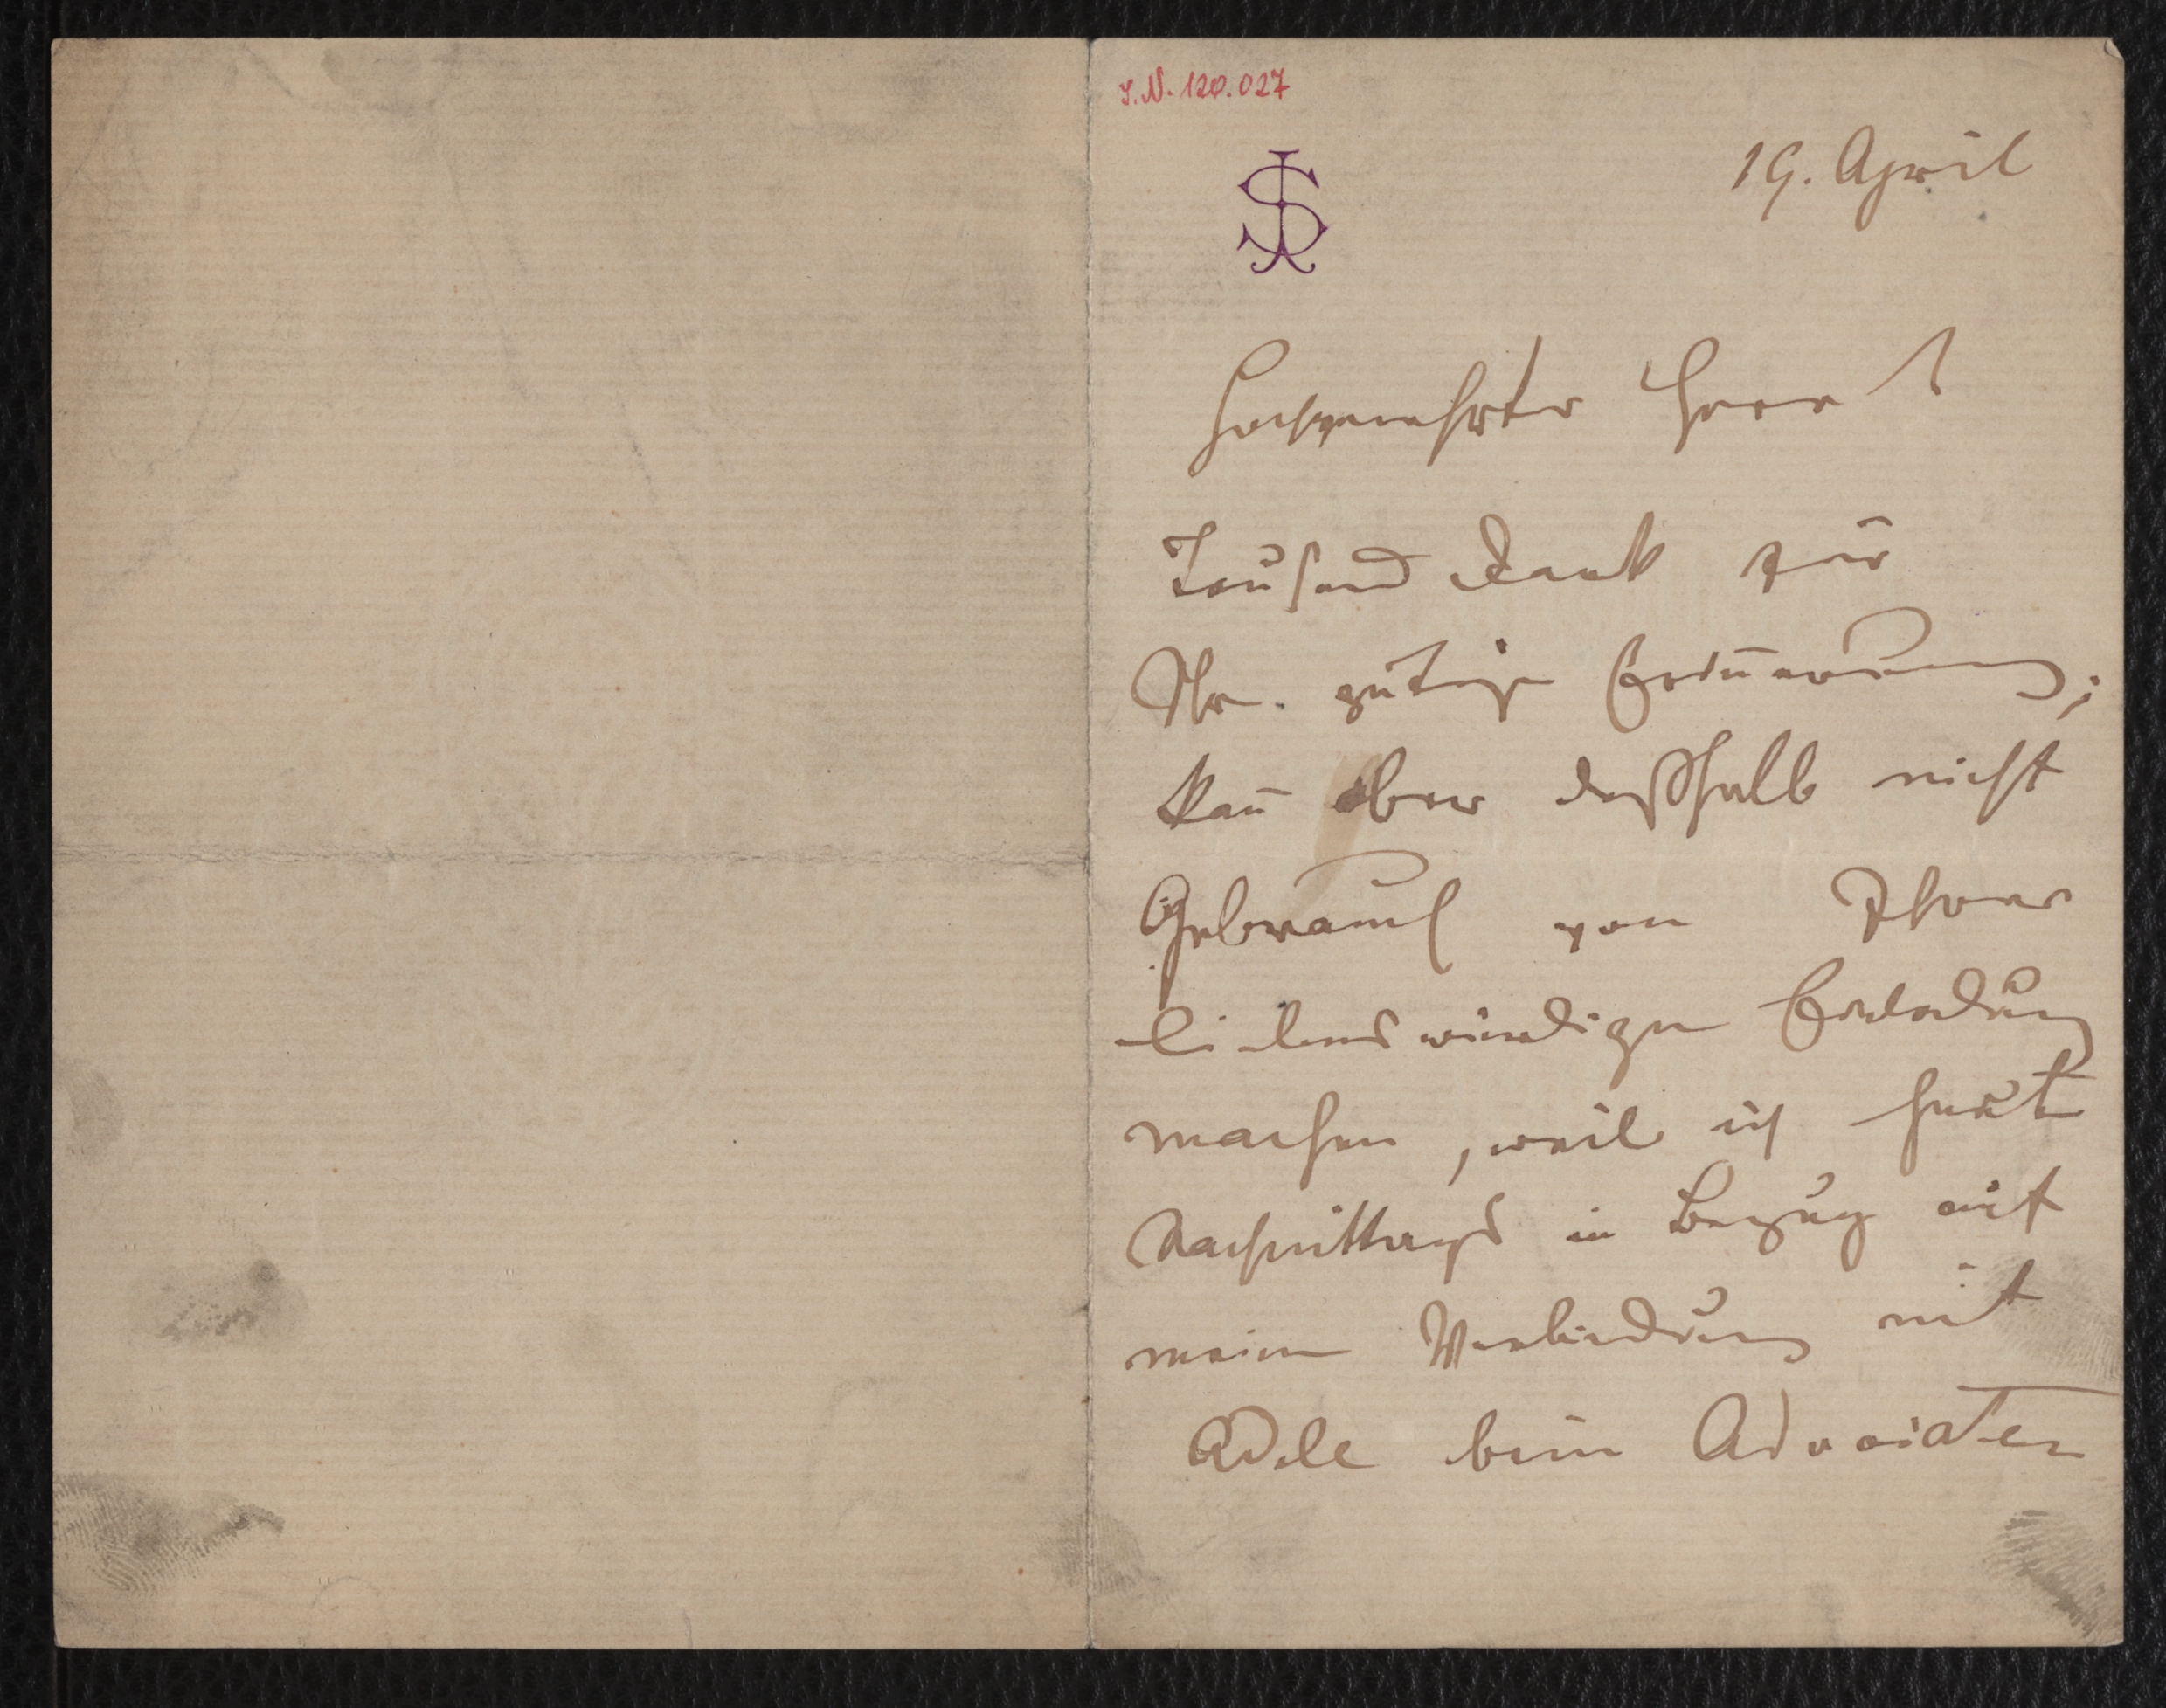 I.N. 120.027
JS
19. April
Hochverehrter Herr!
Tausend Dank für
Ihre gütige Erinnerung;
kan̄ aber deßhalb nicht
Gebrauch von Ihrer
liebenswürdigen Einladung
machen, weil ich heute
Nachmittags in Bezug auf
meine Verbindung mit
Adele beim Advocaten